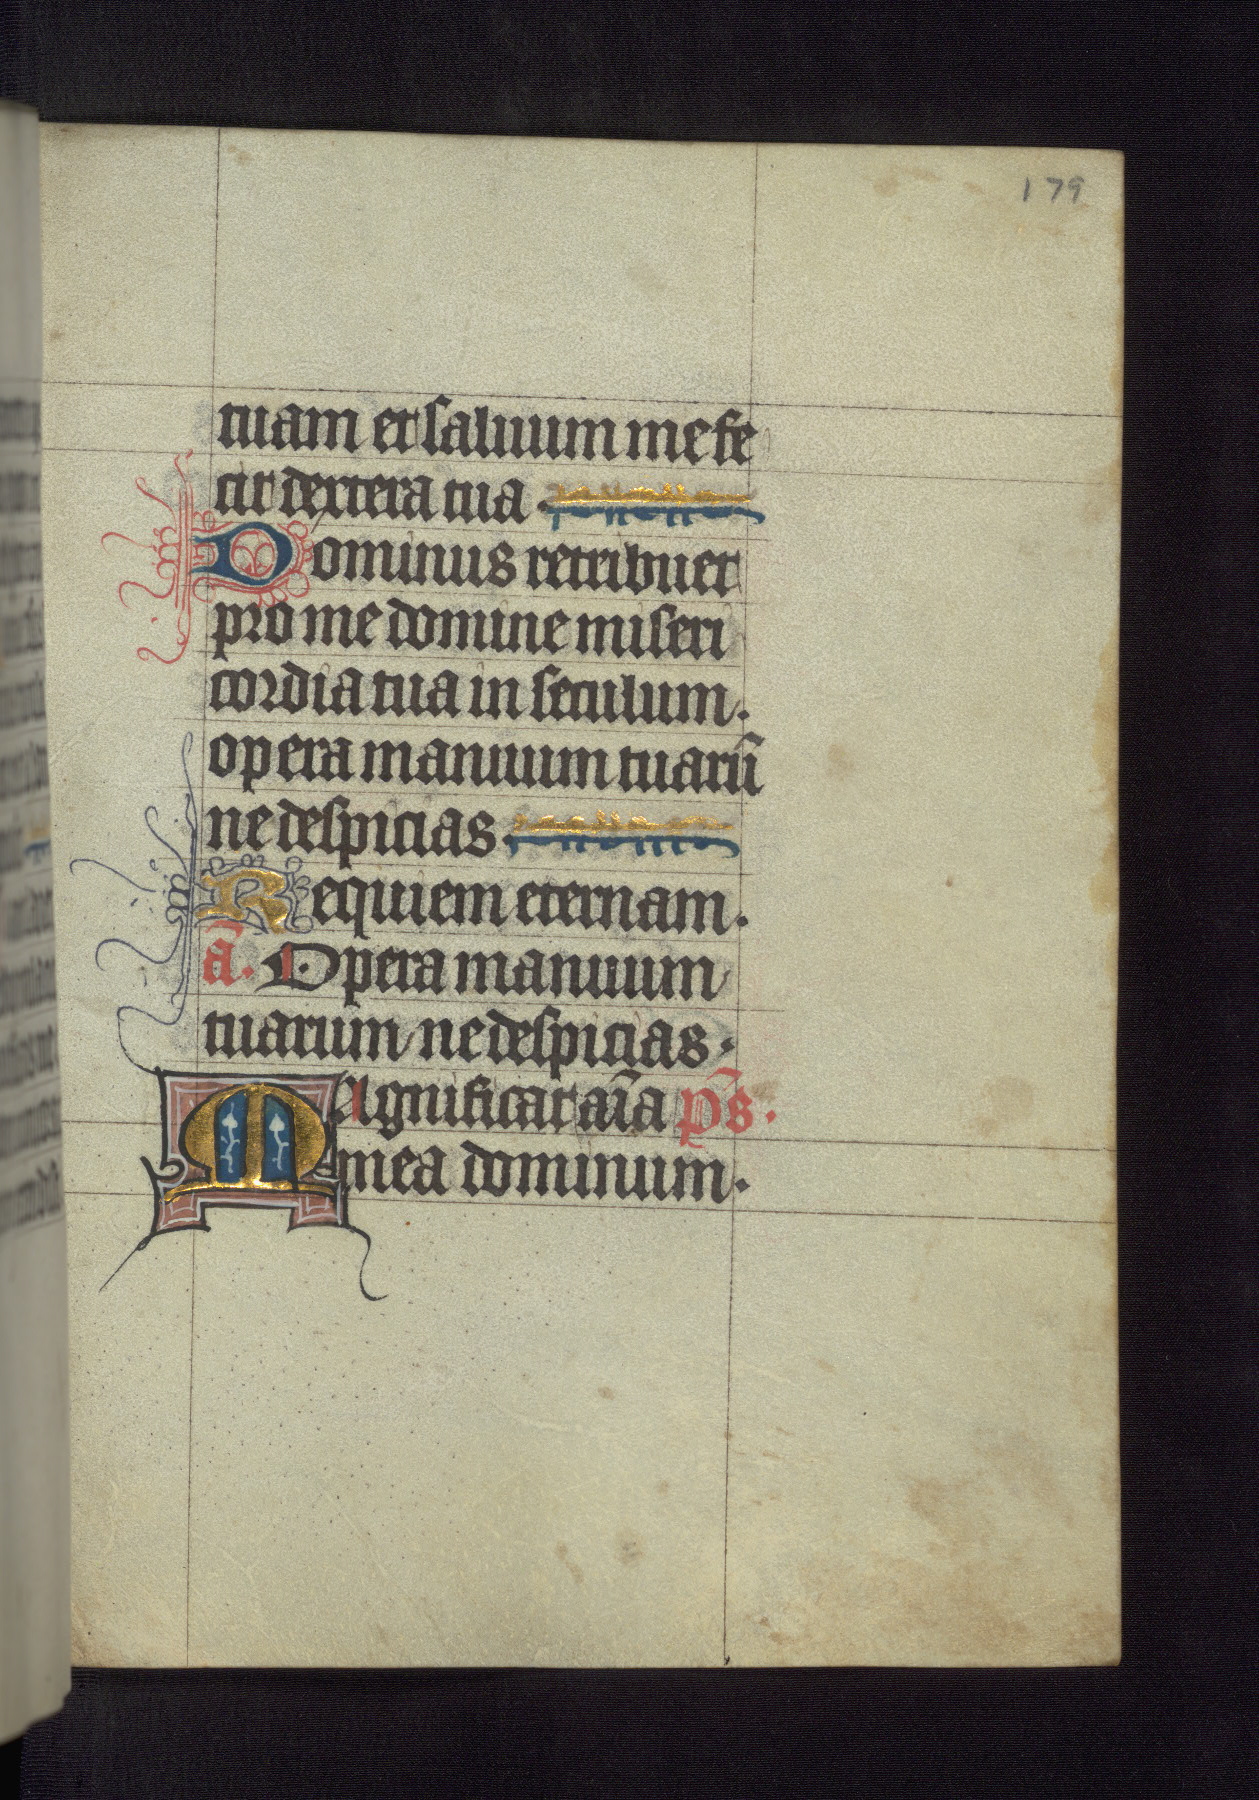 179
tuam et saluum me fe
cit dextera tua.
Dominus retribuet
pro me domine miseri
cordia tua in seculum.
opera manuum tuarū
ne despicias.
Requiem eternam.
ā. Opera manuum
tuarum ne despicias.
Magnificat aīa p̄s.
mea dominum.